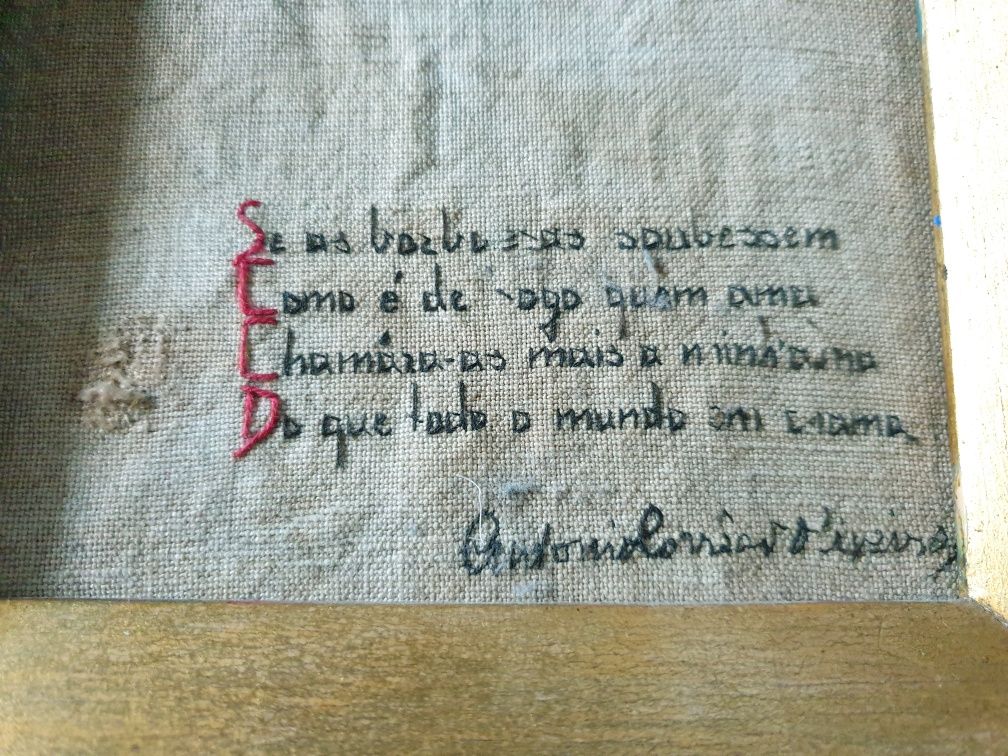 Se as borboletas soubessem
Como é de fogo quem ama
Chamára-as mais a minh'alma
Do que todo o mundo em chama
Antonio Corrêa d'Oliveira